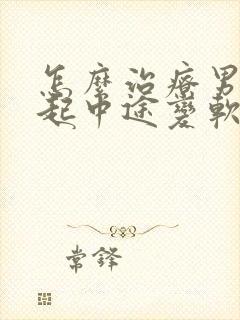 怎麼治療男
起中途變軟
常鋒